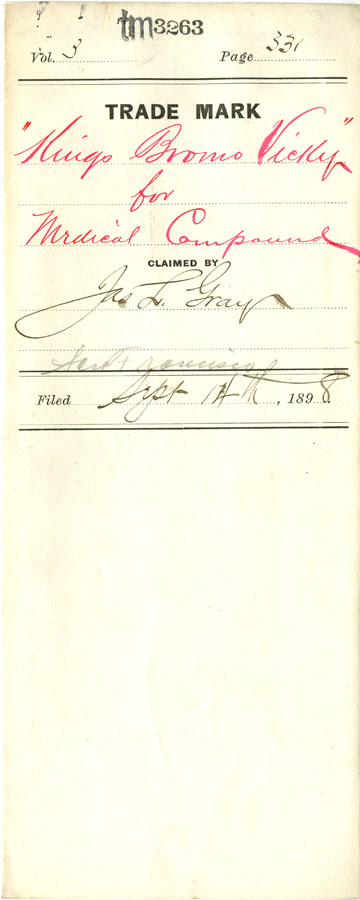 tm3263
Vol. 3 Page 331
TRADE MARK
"Kings Bromo Vichy"
for
Medical Compound
CLAIMED BY
Jas L. Gray
San Francisco
Filed Sept 14th, 1898